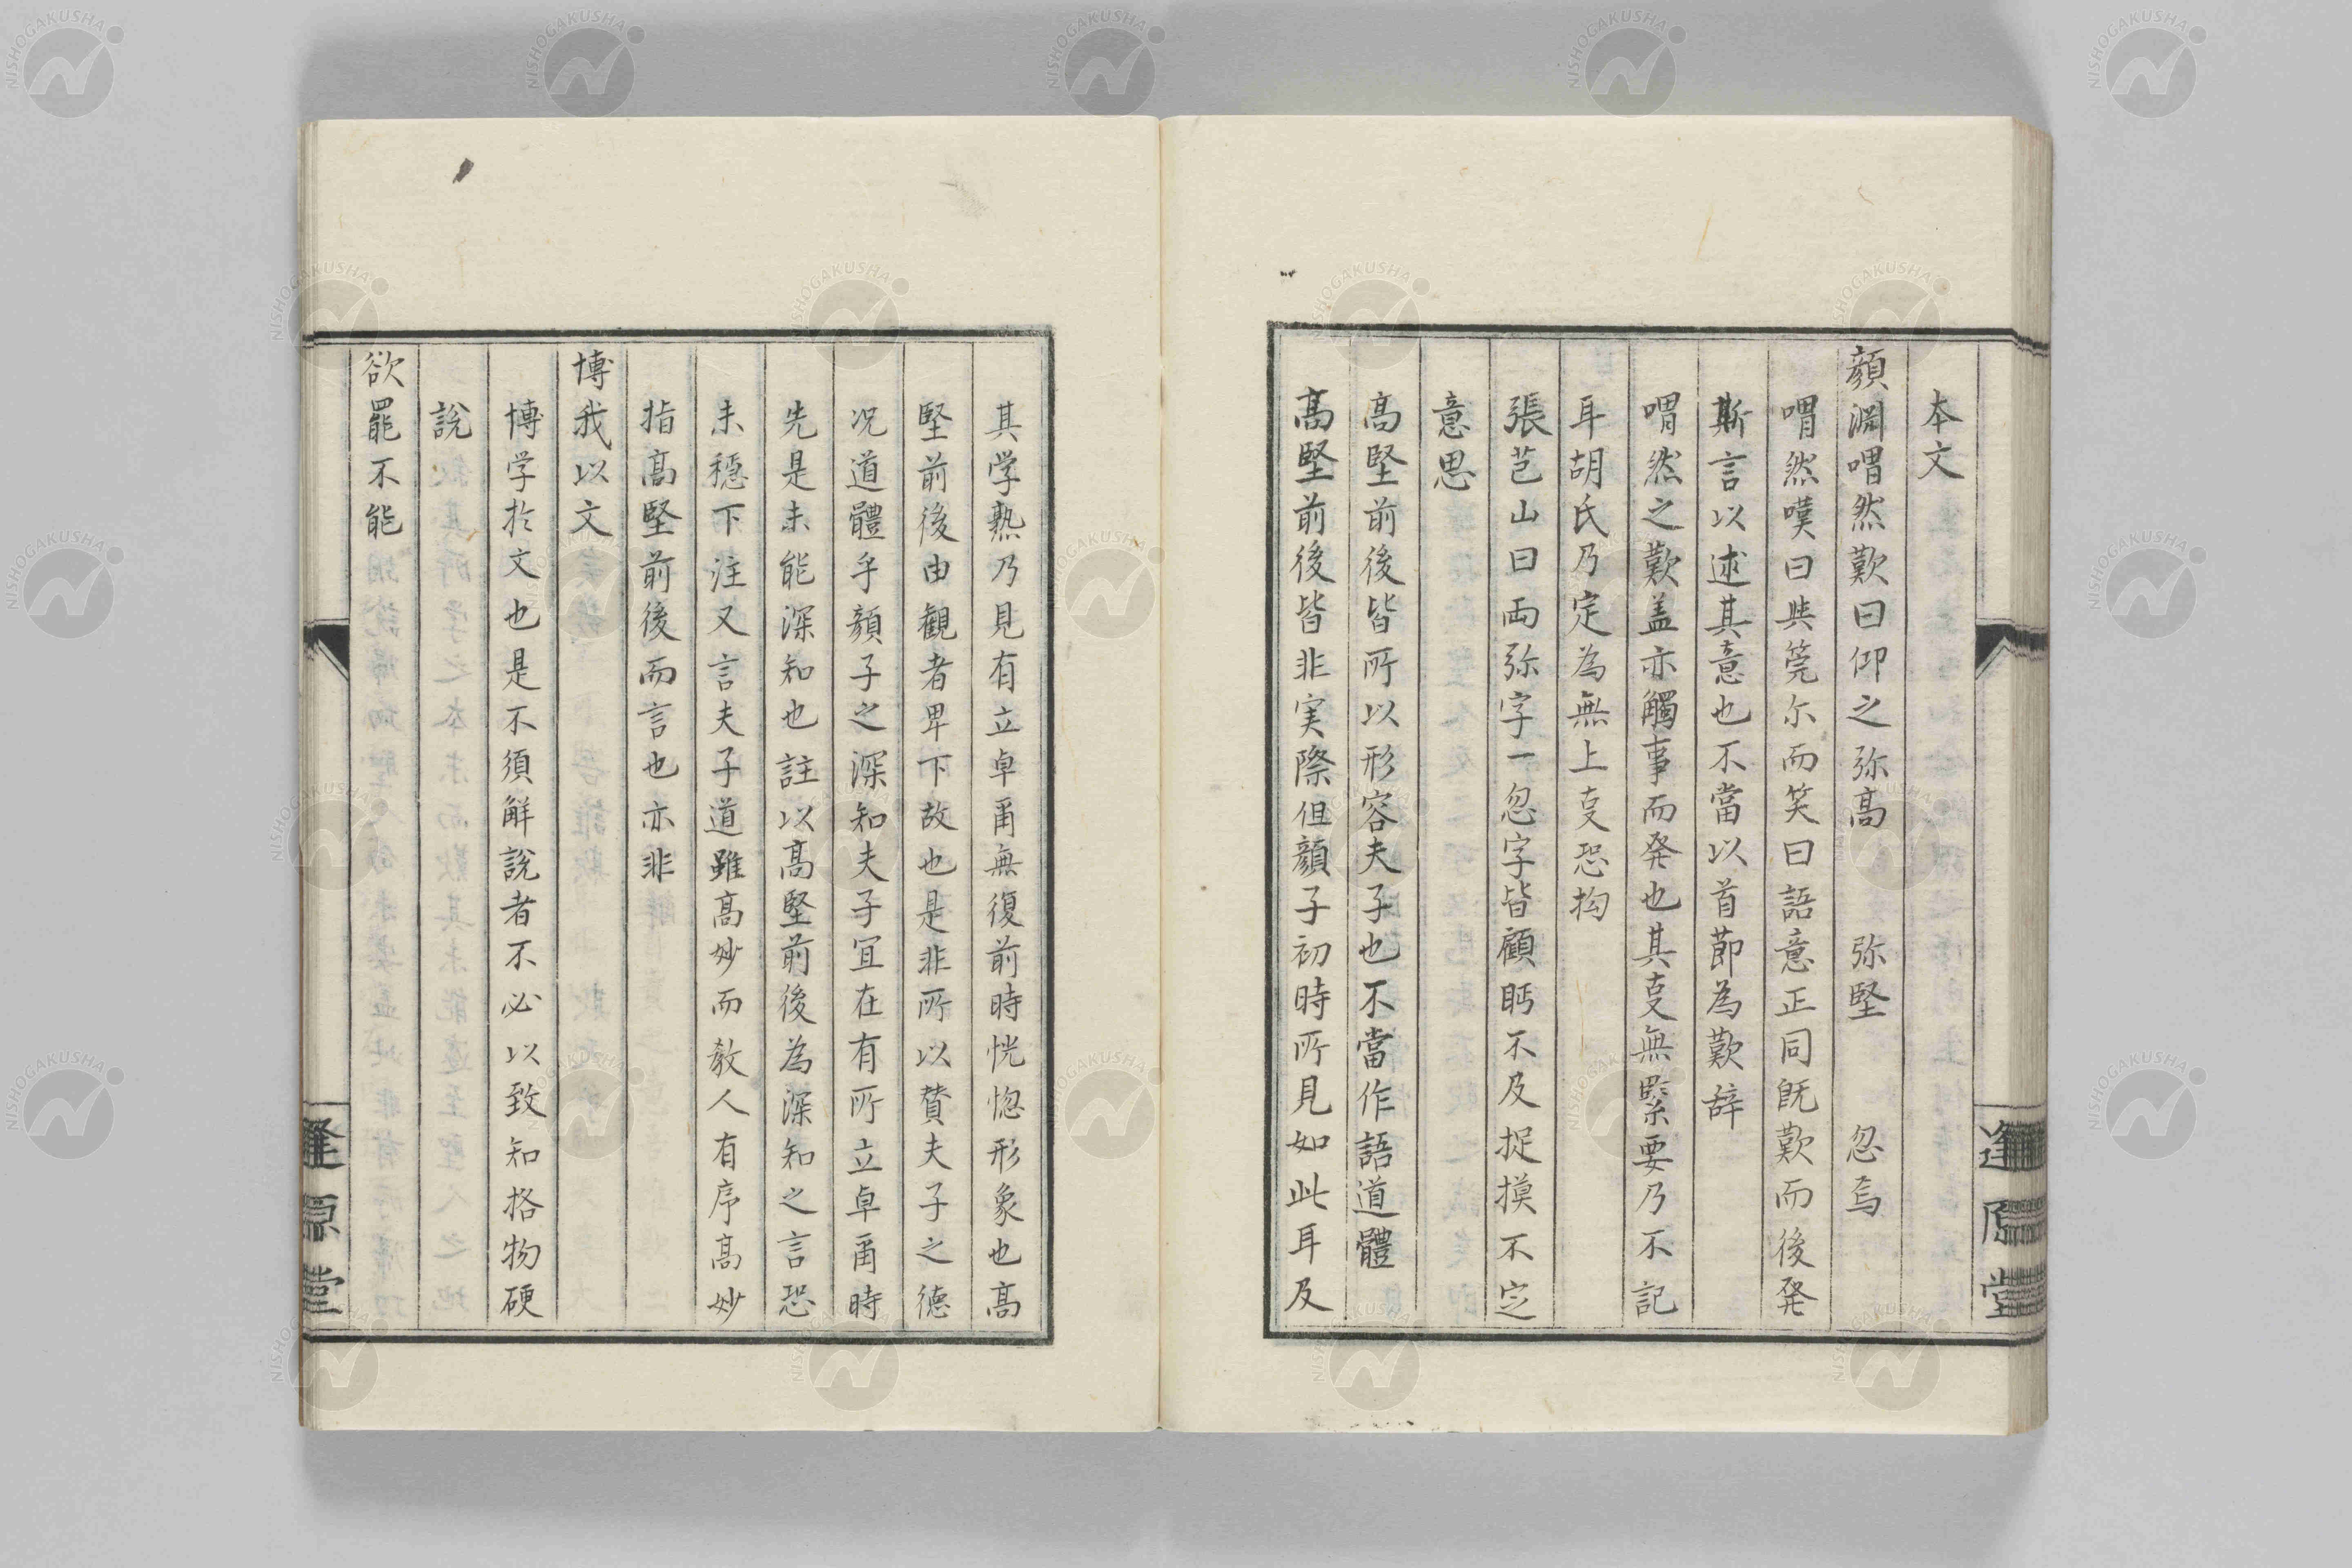 本文
顔淵喟然歎曰仰之弥高　弥堅　忽焉
喟然嘆曰與莞尓而笑曰語意正同既歎而後発
斯言以述其意也不當以首節為歎辞
喟然之歎盖亦觸事而発也其㕝無緊要乃不記
耳胡氏乃定為無上㕝恐拘
張芑山曰両弥字一忽字皆顧眄不及捉摸不定
意思
高堅前後皆所以形容夫子也不當作語道體
高堅前後皆非実際但顔子初時所見如此耳及
逢原堂
其学熟乃見有立卓爾無復前時恍惚形象也高
堅前後由観者卑下故也是非所以賛夫子之徳
况道體乎顔子之深知夫子宜在有所立卓爾時
先是未能深知也註以高堅前後為深知之言恐
未穏下注又言夫子道雖高妙而教人有序高妙
指高堅前後而言也亦非
博我以文
博学於文也是不須解説者不必以致知格物硬
説
欲罷不能
逢原堂
NISHOGAKUSHA